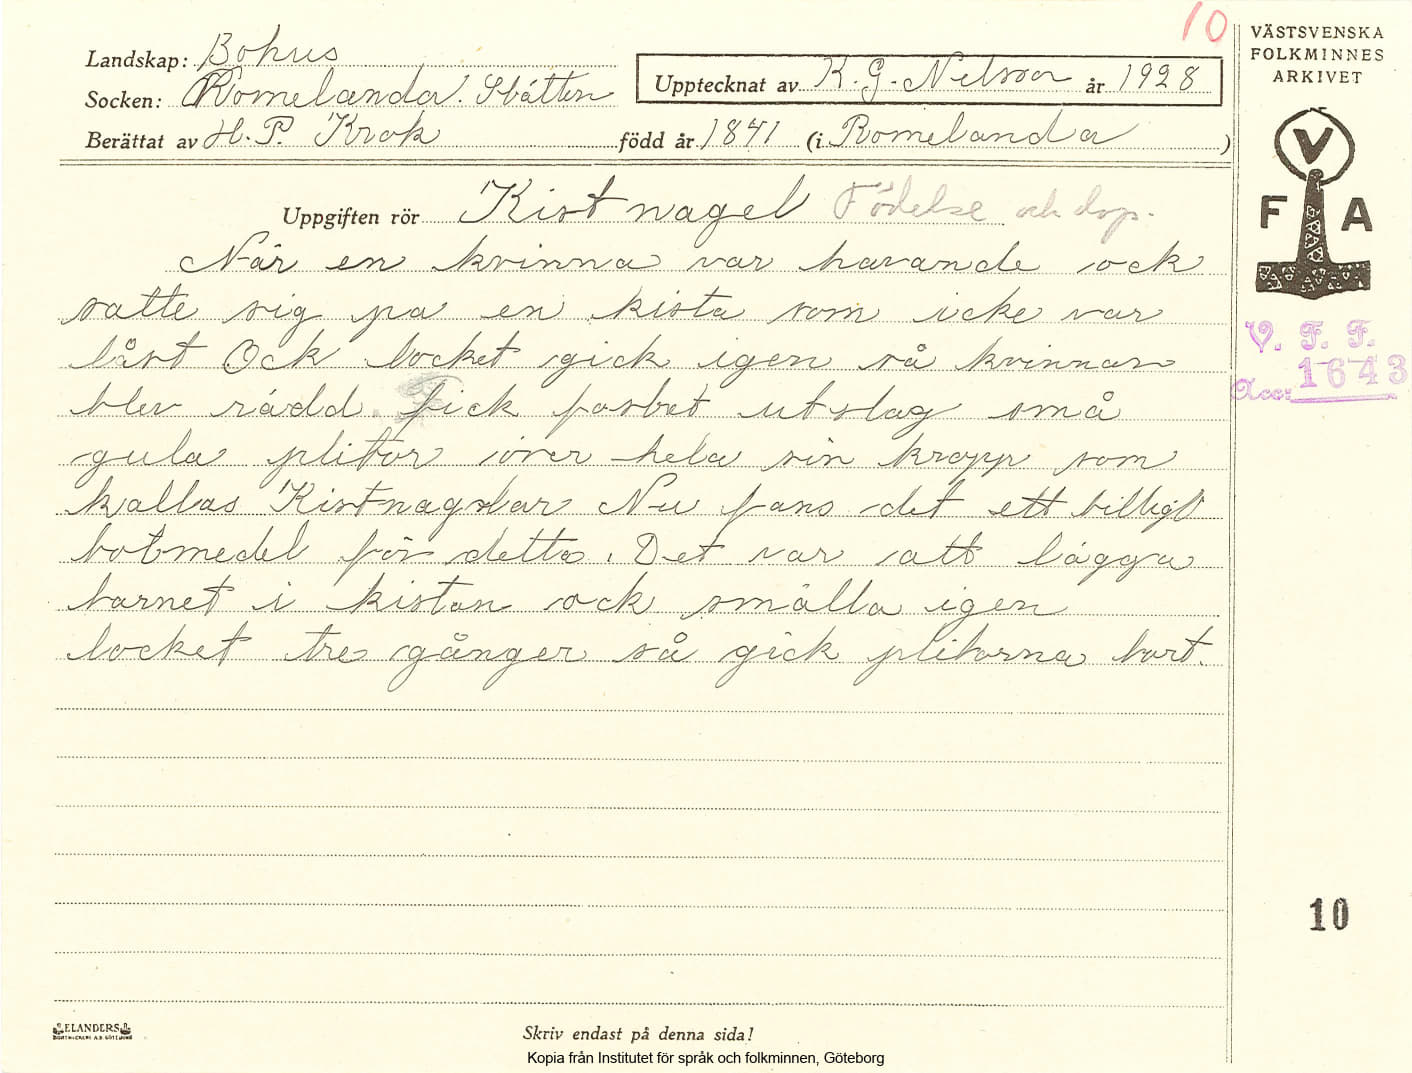 10
VÄSTSVENSKA
FOLKMINNES
ARKIVET
Landskap: Bohus
Socken: Romelanda.
Upptecknat av K. G. Nelson år 1928
Berättat av H. P. Krok född år 1841 (i Romelanda)
Uppgiften rör Kistnagel Födelse och dop.
När en kvinna var havande ock
satte sig pa en kista som icke var
låst Ock locket gick igen så kvinnan
blev rädd. fick fosbet utslag små
gula plitor över hela sin kropp som
kallas Kistnaglar Nu fans det ett billigt
botmedel för detta. Det var att lägga
barnet i kistan ock smälla igen
locket tre gånger så gick plitorna bort.
V F A
V. F. F.
Acc: 1643
10
ELANDERS
Skriv endast på denna sida!
Kopia från Institutet för språk och folkminnen, Göteborg